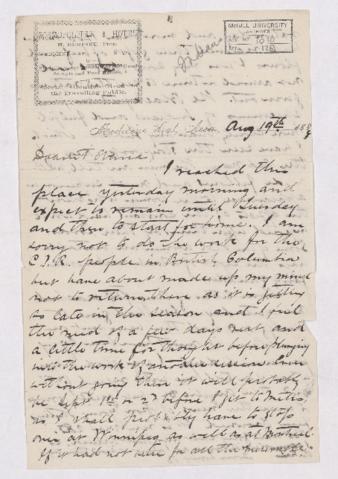 McGILL UNIVERSITY
Medicine Hat, Assa. Aug 19th 188
I reached this
place yesterday morning and
expect to remain until Thursday
and then to start for home. I am
sorry not to do the work for the
C.P.R. people in British Columbia
but have about made up my mind
not to return there as it is getting
so late in the season and I feel
the need of a few days rest and
a little time for thought before plunging
into the work of another session. Even
without going there it will probably
be Sept 1st or 2d before I get to Metis
as I shall probably have to stop
over at Winnipeg as well as at Montreal.
If it had not been for all the